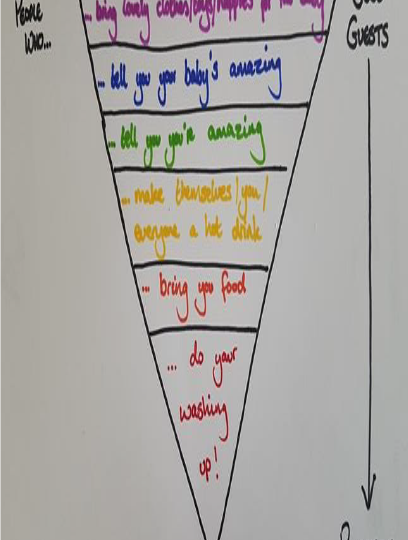 PEOPLE
WHO...
GUESTS
... bring lovely clothes/toys/nappies for the baby
... tell you your baby's amazing
... tell you you're amazing
... make themselves/you/
everyone a hot drink
... bring you food
... do your
washing
up!